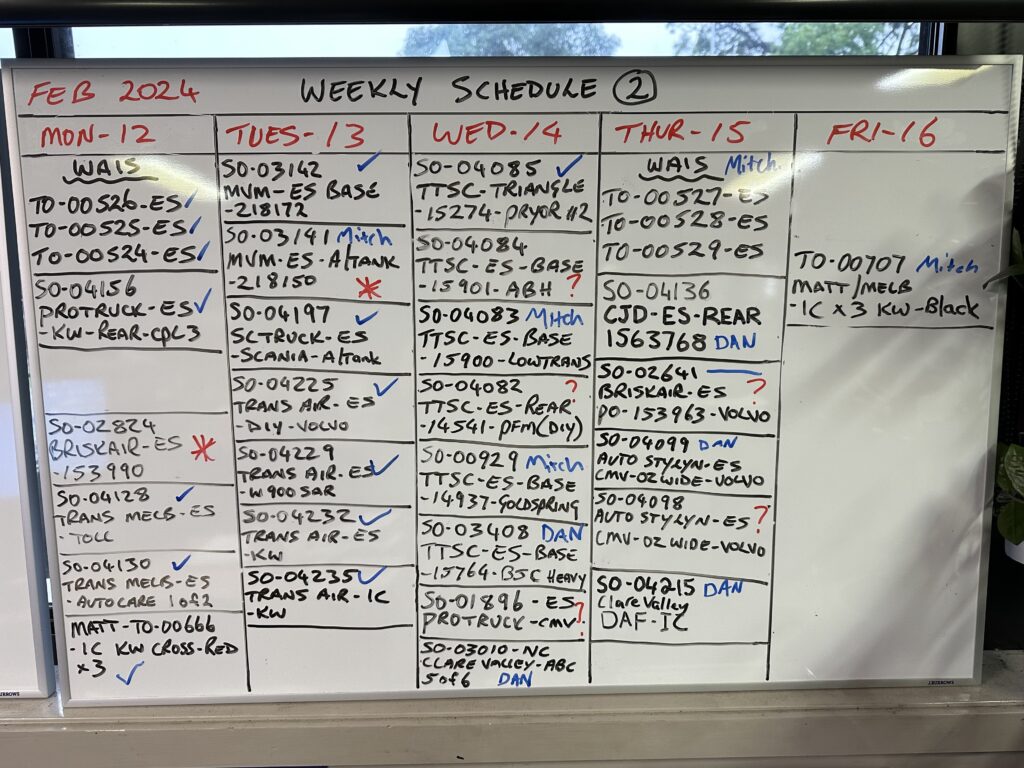 FEB 2024 WEEKLY SCHEDULE 2
MON-12
WAIS
TO-00526-ES ✓
TO-00525-ES ✓
TO-00524-ES ✓
SO-04156
PROTRUCK-ES ✓
-KW-REAR-CPL3
SO-02824
BRISKAIR-ES *
-153990
SO-04128 ✓
TRANS MELB-ES
-TOLL
SO-04130 ✓
TRANS MELB-ES
-AUTOCARE 1 of 2
MATT-TO-00666
-IC KW CROSS-RED
x3 ✓
TUES-13
SO-03142 ✓
MVM-ES BASE
-218172
SO-03141 Mitch
MVM-ES-A/TANK
-218150 *
SO-04197 ✓
SCTRUCK-ES
-SCANIA-A/Tank
SO-04225 ✓
TRANS AIR-ES
-DIY-VOLVO
SO-04229
TRANS AIR-ES ✓
-W900 SAR
SO-04232 ✓
TRANS AIR-ES
-KW
SO-04235 ✓
TRANS AIR-IC
-KW
WED-14
SO-04085 ✓
TTSC-TRIANGLE
-15274-PRYOR #2
SO-04084
TTSC-ES-BASE
-15901-ABH ?
SO-04083 Mitch
TTSC-ES-BASE
-15900-LOWTRANS
SO-04082 ?
TTSC-ES-REAR
-14541-PFM(DIY)
SO-00929 Mitch
TTSC-ES-BASE
-14937-GOLDSPRING
SO-03408 DAN
TTSC-ES-BASE
-15764-BSC HEAVY
SO-01896-ES
PROTRUCK-CMV ?
SO-03010-NC
CLARE VALLEY-ABC
5 of 6 DAN
THUR-15
WAIS Mitch
TO-00527-ES
TO-00528-ES
TO-00529-ES
SO-04136
CJD-ES-REAR
1563768 DAN
SO-02641
BRISKAIR-ES ?
PO-153963-VOLVO
SO-04099 DAN
AUTO STYLYN-ES
CMV-OZ WIDE-VOLVO
SO-04098
AUTO STYLYN-ES ?
CMV-OZ WIDE-VOLVO
SO-04215 DAN
Clare Valley
DAF-IC
FRI-16
TO-00707 Mitch
MATT/MELB
-IC x 3 KW-Black
J.BURROWS